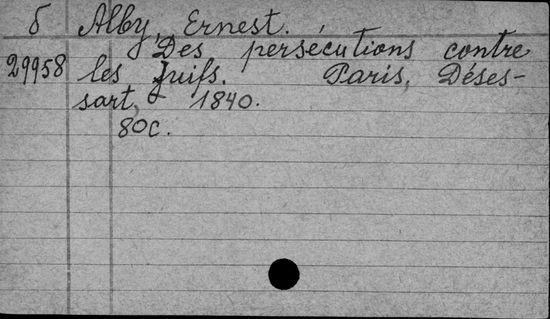 б Alby, Ernest.
Des persécutions contre
29958 les Juifs. Paris, Déses-
sart, 1840.
80c.